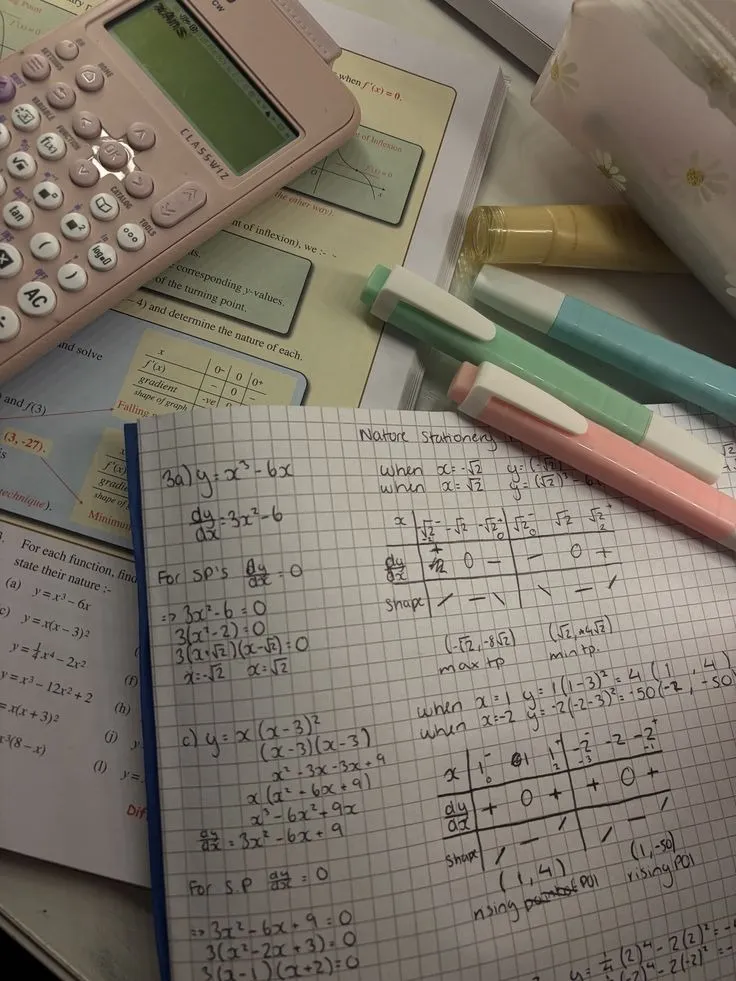 CW
CLASSWIZ
OK
HOME
SETTINGS
VARIABLE
FUNCTION
CATALOG
TOOLS
OFF
AC
tan
f(x)
when f'(x) = 0.
of Inflexion
the other way).
nt of inflexion), we :-
corresponding y-values.
of the turning point.
−4) and determine the nature of each.
and solve
x 0- 0 0+
f'(x) − 0 −
gradient -ve 0
shape of graph
and f(3)
Falling
(3, -27).
technique).
Minimum
For each function, find
state their nature :-
(a) y = x³ − 6x
c) y = x(x − 3)²
y = ¼x⁴ − 2x²
y = x³ − 12x² + 2
= x(x + 3)²
x³(8 − x)
(f)
(h)
(j) y
(l) y =
Nature Stationery
3a) y = x³ - 6x
dy/dx = 3x² - 6
For SP's dy/dx = 0
=> 3x² - 6 = 0
3(x² - 2) = 0
3(x+√2)(x-√2) = 0
x = -√2 x = √2
when x = -√2 y = (-√2)
when x = √2 y = (√2)³ - 6
x -√2 √2
dy/dx + 0 − − 0 +
shape / − \ \ − /
(-√2, -8√2) (√2, -4√2)
max tp min tp.
c) y = x(x-3)²
(x-3)(x-3)
x² - 3x - 3x + 9
x(x² - 6x + 9)
x³ - 6x² + 9x
dy/dx = 3x² - 6x + 9
For S.P dy/dx = 0
=> 3x² - 6x + 9 = 0
3(x² - 2x + 3) = 0
3(x-1)(x+2) = 0
when x = 1 y = 1(1-3)² = 4 (1, 4)
when x = -2 y = -2(-2-3)² = -50 (-2, -50)
x 1⁻ 1 1⁺ -2⁻ -2 -2⁺
0 2 -3 -1
dy/dx + 0 + + 0 +
shape / − / / − /
(1, 4) (1, -50)
rising POI rising POI
y = ¼(2)⁴ - 2(2)² =
(-2)⁴ - 2(-2)² =